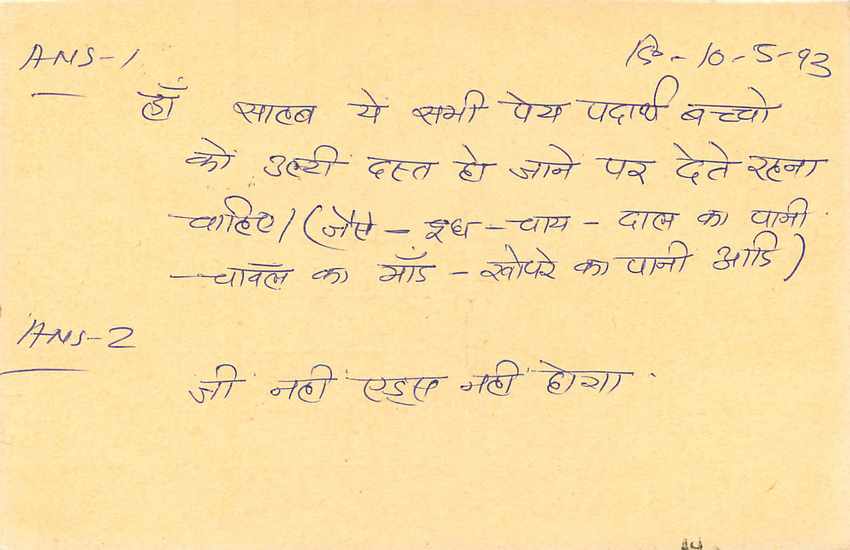 ANS-1 दि- 10-5-93
हाँ साहब ये सभी पेय पदार्थ बच्चो
को उल्टी दस्त हो जाने पर देते रहना
चाहिए। (जैसे - दूध - चाय - दाल का पानी
- चावल का माँड - खोपरे का पानी आदि)
ANS-2
जी नही एड्स नही होगा.